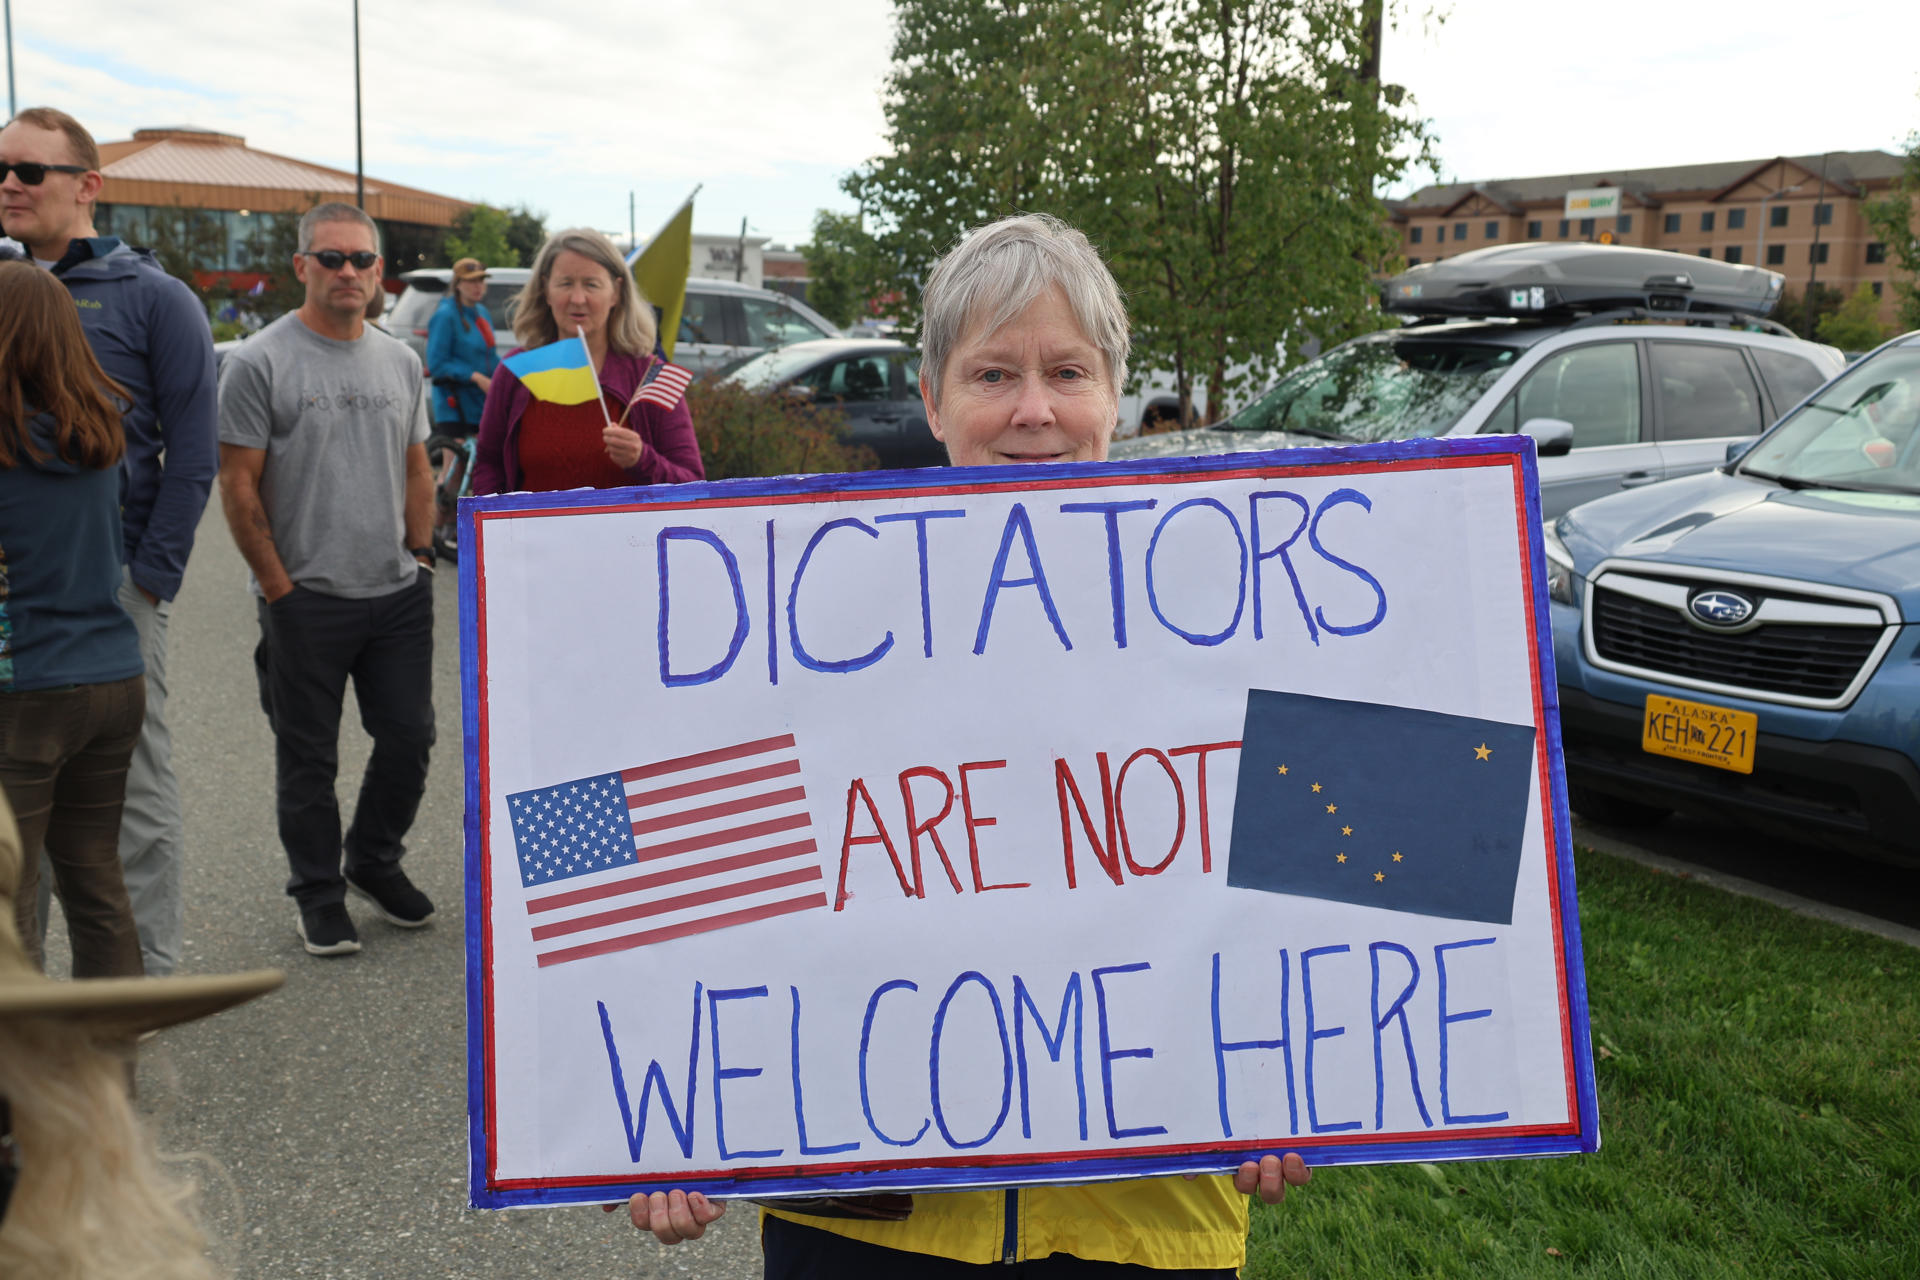 DICTATORS
ARE NOT
WELCOME HERE
SUBWAY
Rab
ALASKA
KEH 221
THE LAST FRONTIER